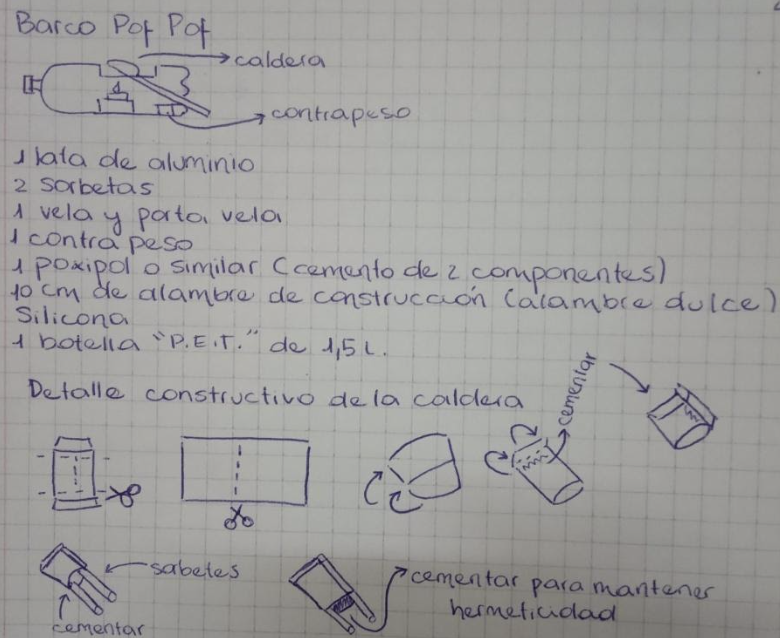 Barco Pof Pof
caldera
contrapeso
1 lata de aluminio
2 sorbetas
1 vela y porta vela
1 contra peso
1 poxipol o similar (cemento de 2 componentes)
10 cm de alambre de construcción (alambre dulce)
Silicona
1 botella "P.E.T." de 1,5 L.
Detalle constructivo de la caldera
cementar
sabetes
cementar
cementar para mantener
hermeticidad